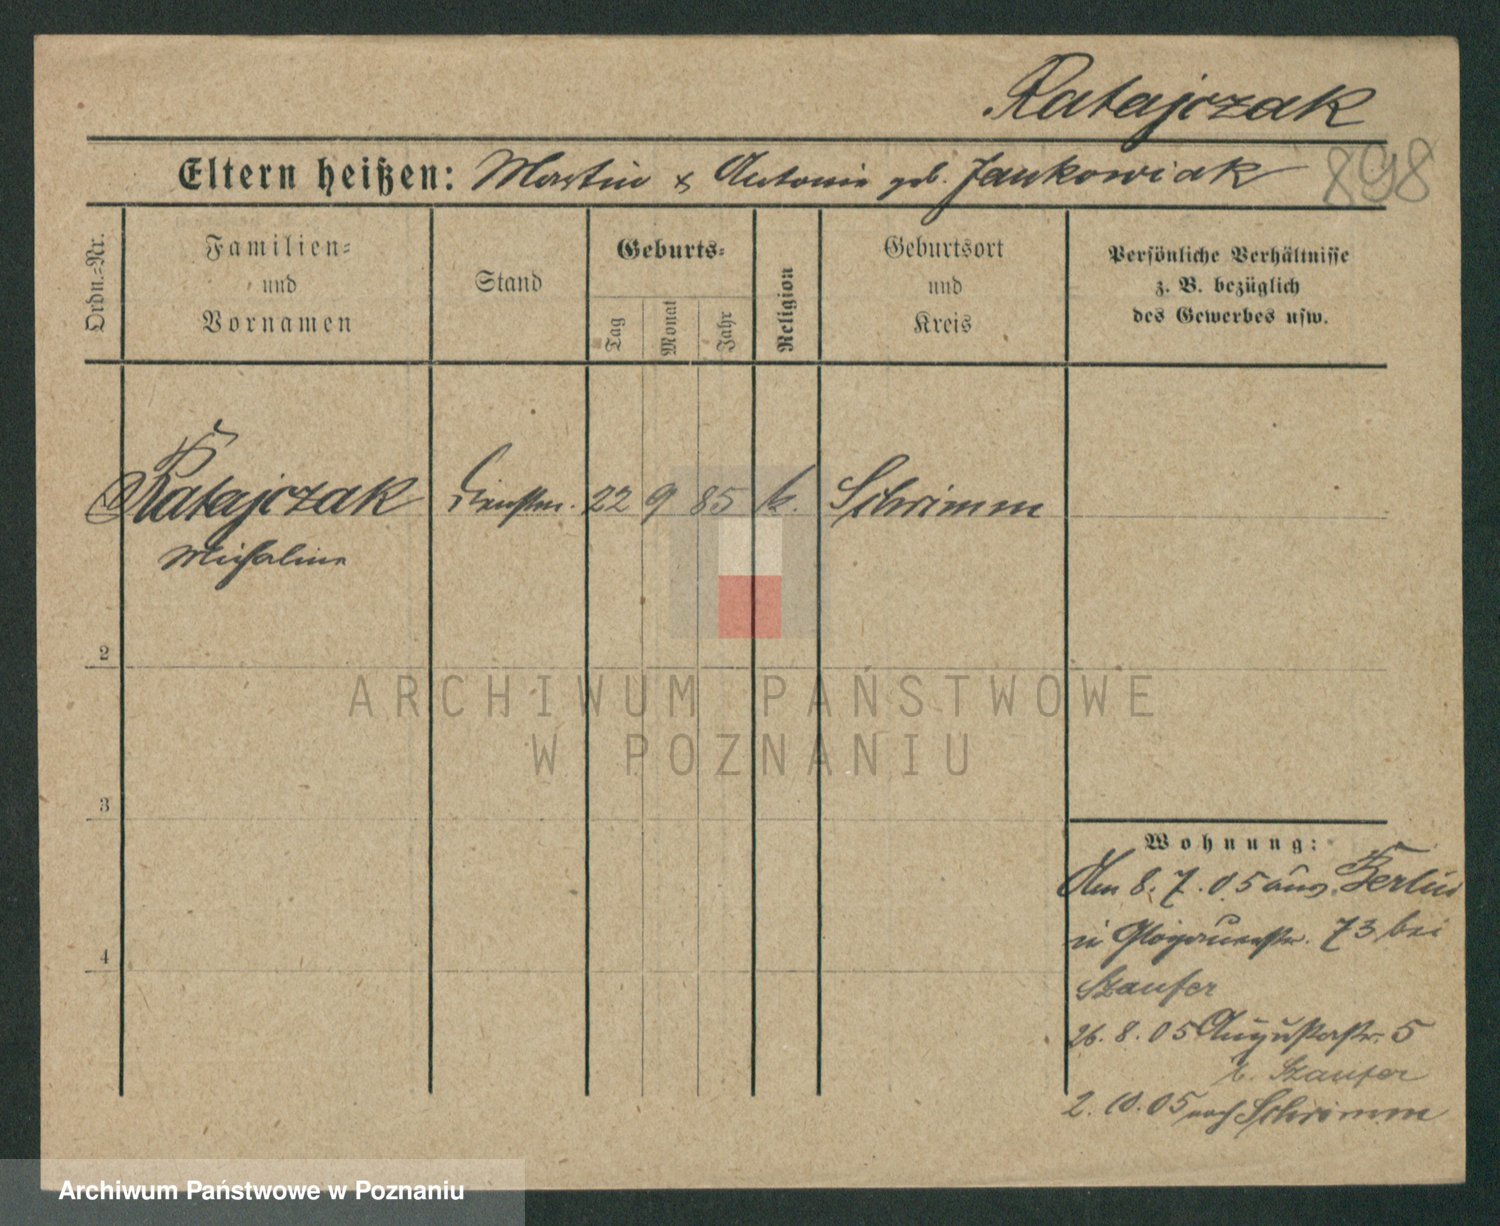 Ratajczak
Eltern heißen: Martin & Antonie geb. Jankowiak
898
Ordn.=Nr.
Familien=
und
Vornamen
Stand
Geburts=
Tag
Monat
Jahr
Religion
Geburtsort
und
Kreis
Persönliche Verhältnisse
z. B. bezüglich
des Gewerbes usw.
Ratajczak
Dienstm. 22 9 85 k. Schrimm
Michalina
2
3
4
ARCHIWUM PAŃSTWOWE
W POZNANIU
Wohnung:
8. 7. 05 aus Berlin
in Glogauerstr. 73 bei
26. 8. 05 Augustastr. 5
b.
2. 10. 05 nach Schrimm
Archiwum Państwowe w Poznaniu